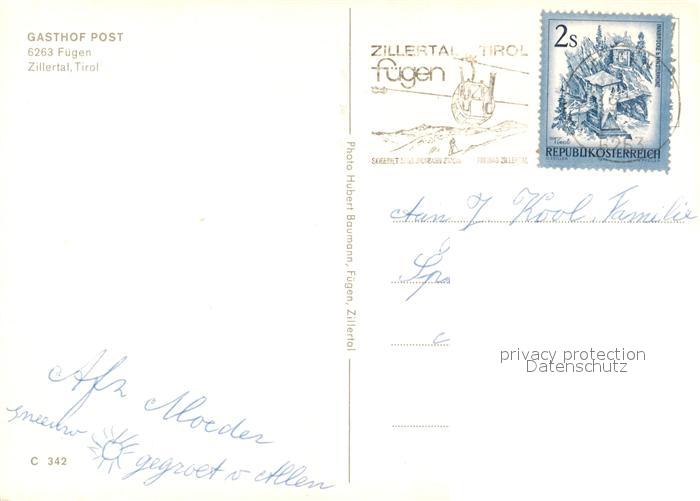 GASTHOF POST
6263 Fügen
Zillertal, Tirol
ZILLERTAL TIROL
fügen
2s
REPUBLIK ÖSTERREICH
6263
Photo Hubert Baumann, Fügen, Zillertal
Aan J Kool, Familie
Sp
privacy protection
Datenschutz
Afz Moeder
sneeuw gegroet v Allen
C 342